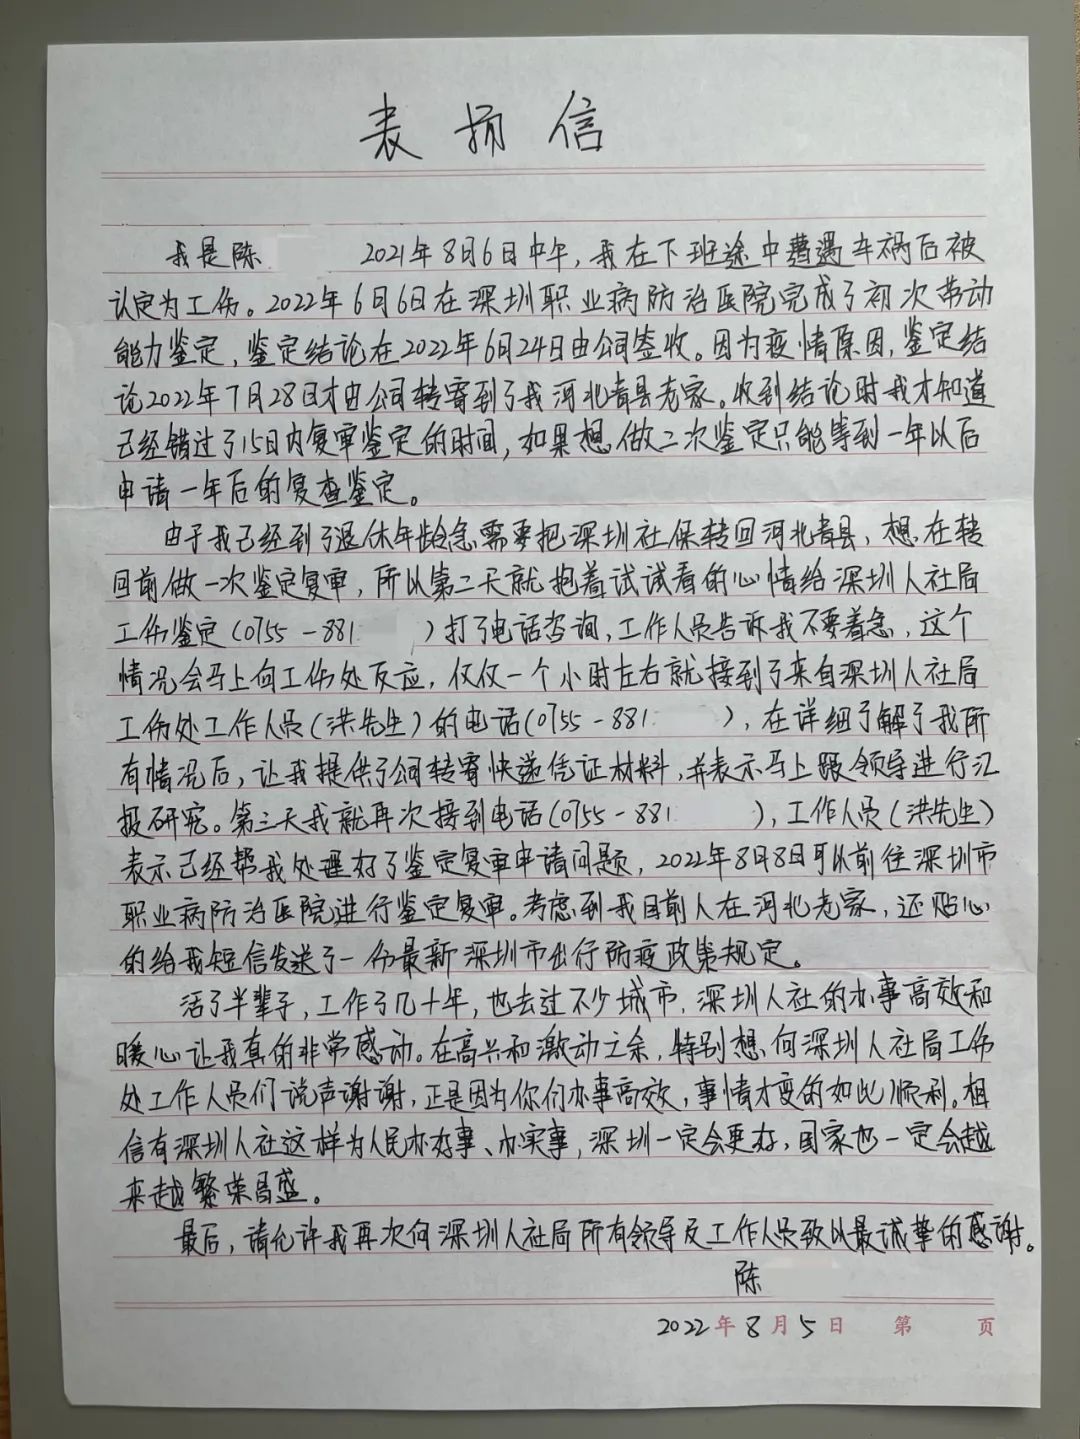 表扬信
我是陈 2021年8月6日中午，我在下班途中遭遇车祸后被
认定为工伤。2022年6月6日在深圳职业病防治医院完成了初次劳动
能力鉴定，鉴定结论在2022年6月24日由公司签收。因为疫情原因，鉴定结
论2022年7月28日才由公司转寄到了我河北青县老家。收到结论时我才知道
已经错过了15日内复审鉴定的时间，如果想做二次鉴定只能等到一年以后
申请一年后的复查鉴定。
由于我已经到了退休年龄急需要把深圳社保转回河北青县，想在转
回前做一次鉴定复审，所以第二天就抱着试试看的心情给深圳人社局
工伤鉴定（0755-881 ）打了电话咨询，工作人员告诉我不要着急，这个
情况会马上向工伤处反应，仅仅一个小时左右就接到了来自深圳人社局
工伤处工作人员（洪先生）的电话（0755-881 ），在详细了解了我所
有情况后，让我提供了公司转寄快递凭证材料，并表示马上跟领导进行汇
报研究。第三天我就再次接到电话（0755-881 ），工作人员（洪先生）
表示已经帮我处理好了鉴定复审申请问题，2022年8月8日可以前往深圳市
职业病防治医院进行鉴定复审。考虑到我目前人在河北老家，还贴心
的给我短信发送了一份最新深圳市出行防疫政策规定。
活了半辈子，工作了几十年，也去过不少城市，深圳人社的办事高效和
暖心让我真的非常感动。在高兴和激动之余，特别想向深圳人社局工伤
处工作人员们说声谢谢，正是因为你们办事高效，事情才变的如此顺利。相
信有深圳人社这样为人民办好事、办实事，深圳一定会更好，国家也一定会越
来越繁荣昌盛。
最后，请允许我再次向深圳人社局所有领导及工作人员致以最诚挚的感谢。
陈
2022年8月5日 第 页